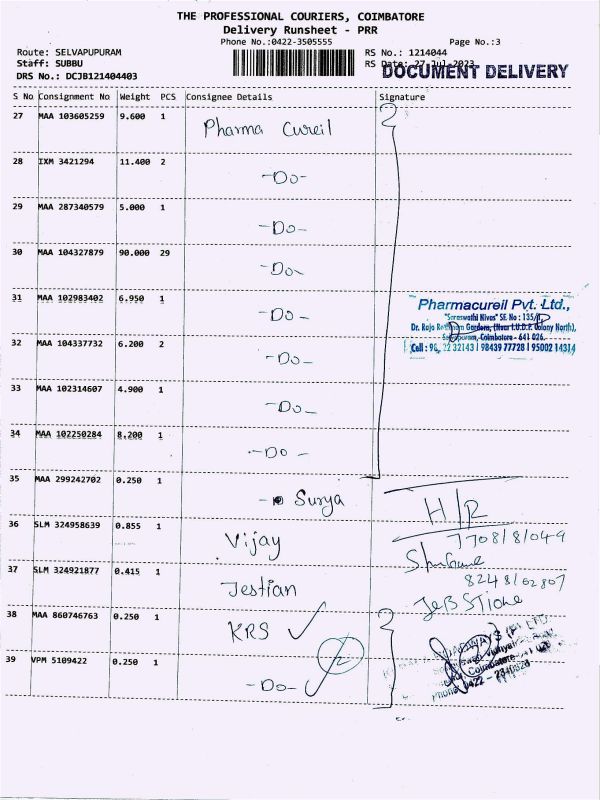 THE PROFESSIONAL COURIERS, COIMBATORE
Delivery Runsheet - PRR
Phone No.:0422-3505555 Page No.:3
Route: SELVAPUPURAM RS No.: 1214044
Staff: SUBBU RS Date: 27-Jul-2023
DRS No.: DCJB121404403 DOCUMENT DELIVERY
S No Consignment No Weight PCS Consignee Details Signature
27 MAA 103605259 9.600 1 Pharma Cureil
28 IXM 3421294 11.400 2 -Do-
29 MAA 287340579 5.000 1 -Do-
30 MAA 104327879 90.000 29 -Do-
31 MAA 102983402 6.950 1 -Do-
Pharmacureil Pvt. Ltd.,
"Saraswathi Nivas" SF. No : 135/
Gardens, (Near I.U.D.P. Colony North),
Coimbatore - 641 026.
32143 | 98439 77728 | 95002 14314
32 MAA 104337732 6.200 2 -Do-
33 MAA 102314607 4.900 1 -Do-
34 MAA 102250284 8.200 1 -Do-
35 MAA 299242702 0.250 1 Surya H/R
36 SLM 324958639 0.855 1 Vijay
37 SLM 324921877 0.415 1 Jestian
38 MAA 860746763 0.250 1 KRS
2
39 VPM 5109422 0.250 1 -Do-